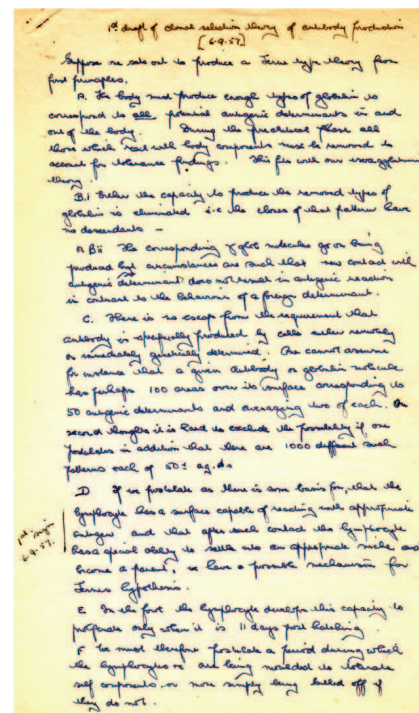 1st draft of clonal selection theory of antibody production
[6.9.57]
Suppose we sets out to produce a Jerne type theory from
first principles.
A. The body must produce enough types of globulin to
correspond to all potential antigenic determinants in and
out of the body. During the prenatal phase all
those which react with body components must be removed to
account for tolerance findings. This fits with our
theory.
B.i Either the capacity to produce the removed types of
globulin is eliminated i.e the clones of that pattern have
no descendants -
or Bii The corresponding γ glob molecules go on being
produced but circumstances are such that new contact with
antigenic determinant does not result in antigenic reaction
in contrast to the behaviour of a foreign determinant.
C. There is no escape from the requirement that
antibody is specifically produced by cells either remotely
or immediately genetically determined. One cannot assume
for instance that a given antibody or globulin molecule
has perhaps 100 areas over its surface corresponding to
50 antigenic determinants and averaging two of each. On
second thoughts it is hard to exclude the possibility if one
postulates in addition that there are 1000 different such
patterns each of 50± ag.ds
D If we postulate as there is some basis for, that the
lymphocyte has a surface capable of reacting with appropriate
antigen and that after such contact the lymphocyte
has a special ability to settle into an appropriate niche and
become a parent, we have a possible mechanism for
Jernes hypothesis.
1st
6.9.57.
E In the fowl the lymphocyte develops this capacity to
proliferate only when it is 11 days post hatching.
F We must therefore postulate a period during which
the lymphocytes or are being moulded to tolerate
self components or more simply being killed off if
they do not.